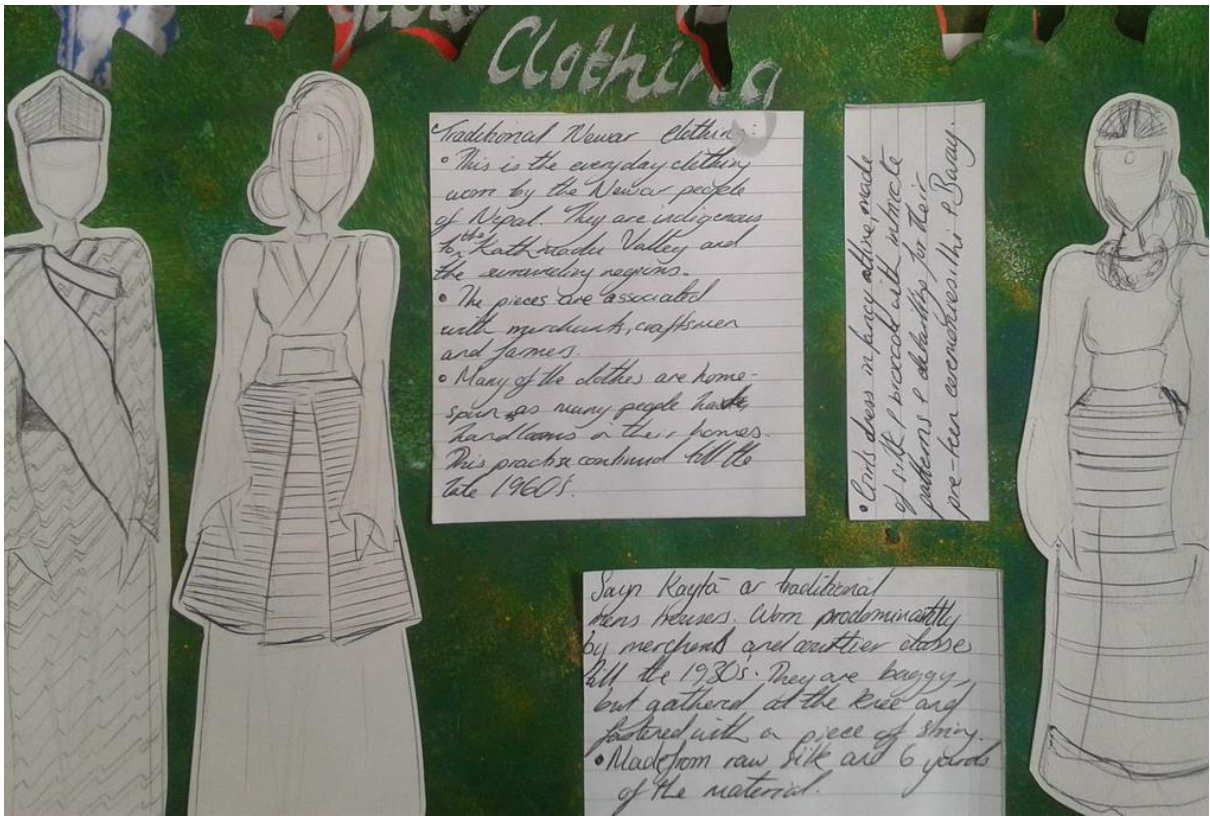 Clothing
Traditional Newar Clothing:
• This is the everyday clothing
worn by the Newar people
of Nepal. They are indigenous
to the Kathmadu Valley and
the surrounding regions.
• The pieces are associated
with merchants, craftsmen
and farmers.
• Many of the clothes are home-
spun, as many people had
handlooms in their homes.
This practise continued till the
late 1960s.
• Girls dress in pracy attire, made
of silk & brocade with intricate
patterns & detailing for their
pre-teen ceremonies: Ihi & Baray.
Suyn Kayta or traditional
mens trousers. Worn predominantly
by merchant and courtier classes
till the 1930's. They are baggy,
but gathered at the knee and
fastened with a piece of string.
• Made from raw silk and 6 yards
of the material.